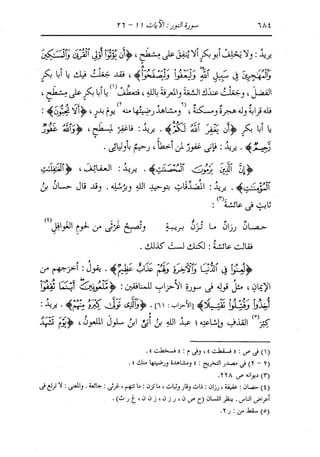 ٦٨٤
سورة النور: الآيات ١١ - ٢٦
يريد: ولا يحلف أبو بكر ألا ينفق على مسطح، ﴿أَن يُؤْتُوا أُولِي الْقُرْبَىٰ وَالْمَسَاكِينَ
وَالْمُهَاجِرِينَ فِي سَبِيلِ اللَّهِ وَلْيَعْفُوا وَلْيَصْفَحُوا﴾، فقد جعلتُ فيك يا أبا بكر
الفضلَ، وجعلتُ عندك السَّعَةَ والمعرفة بالله، فتعطَّفْ(١) يا أبا بكر على مسطح،
فله قرابةٌ وله هجرةٌ ومسكنةٌ، (٢)ومشاهد رضيتُها منه(٢) يوم بدر، ﴿أَلَا تُحِبُّونَ﴾:
يا أبا بكر ﴿أَن يَغْفِرَ اللَّهُ لَكُمْ﴾. يريد: فاغفر لمسطح، ﴿وَاللَّهُ غَفُورٌ
رَّحِيمٌ﴾. يريد: فإني غفورٌ لمن أخطأ، رحيمٌ بأوليائي.
﴿إِنَّ الَّذِينَ يَرْمُونَ الْمُحْصَنَاتِ﴾. يريد: العفائفَ، ﴿الْغَافِلَاتِ
الْمُؤْمِنَاتِ﴾. يريد: المصدِّقاتِ بتوحيد الله وبرُسُله. وقد قال حسانُ بنُ
ثابت في عائشة(٣):
حصانٌ رزانٌ ما تُزَنُّ بريبةٍ وتُصبحُ غَرْثى من لحوم الغوافلِ(٤)
فقالت عائشة: لكنك لست كذلك.
﴿لُعِنُوا فِي الدُّنْيَا وَالْآخِرَةِ وَلَهُمْ عَذَابٌ عَظِيمٌ﴾. يقول: أخرجهم من
الإيمان، مثلُ قوله في سورة الأحزاب للمنافقين: ﴿مَّلْعُونِينَ أَيْنَمَا ثُقِفُوا
أُخِذُوا وَقُتِّلُوا تَقْتِيلًا﴾ [الأحزاب: ٦١]. ﴿وَالَّذِي تَوَلَّىٰ كِبْرَهُ مِنْهُمْ﴾. يريد:
كِبْرَ(٥) القذفِ وإشاعتِه؛ عبدُ الله بنُ أُبيّ ابنُ سلولَ الملعونُ، ﴿يَوْمَ تَشْهَدُ
(١) في ص: «فسقطت»، وفي م: «فسخطت».
(٢ - ٢) في مصدر التخريج: «ومشاهدة ورضيتها منك».
(٣) ديوانه ص ٢٢٨.
(٤) حصان: عفيفة، رزان: ذات وقار وثبات، ما تزن: ما تتهم، غرثى: جائعة. والمعنى: لا ترتع في
أعراض الناس. ينظر اللسان (ح ص ن، ر ز ن، ز ن ن، غ ر ث).
(٥) سقط من: ر ٢.